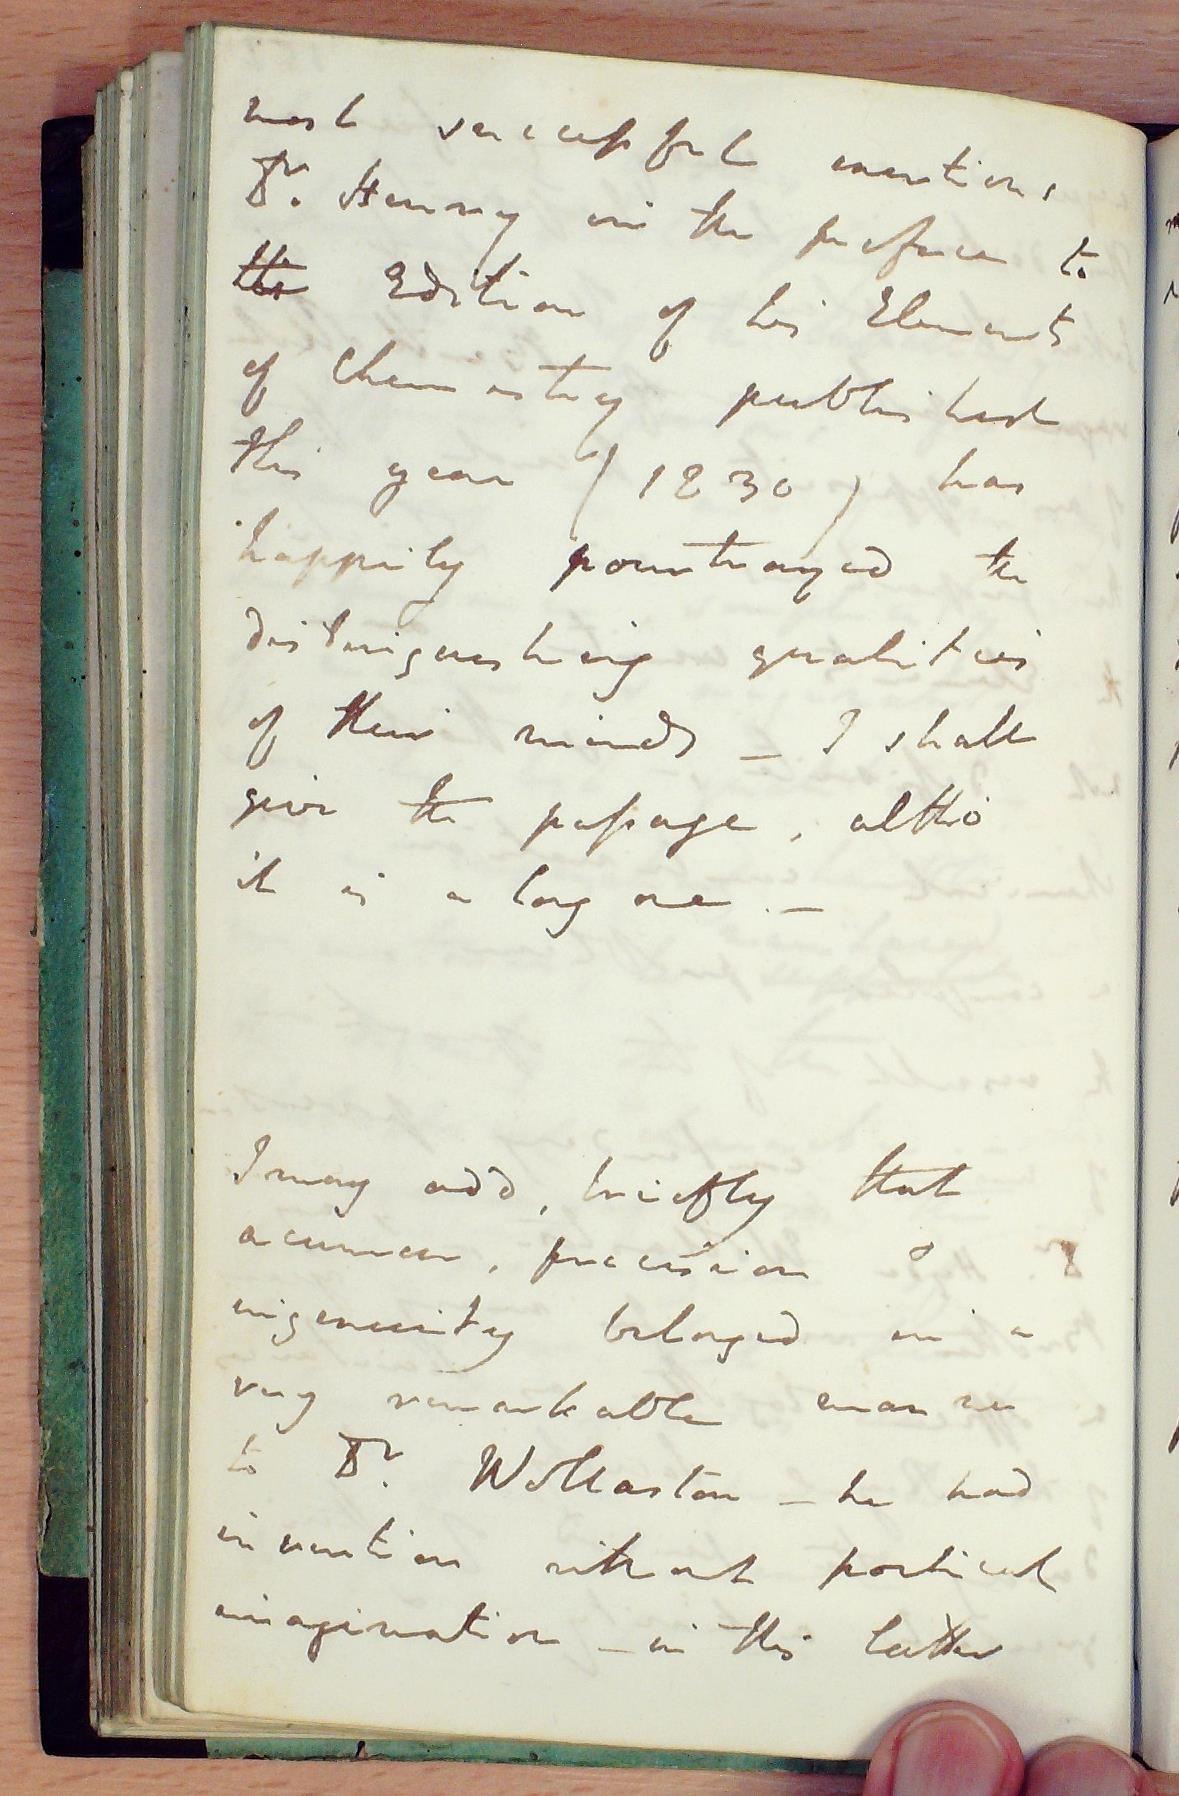 most successful exertions
Dr. Henry in the preface to
the Edition of his Elements
of Chemistry published
this year (1830) has
happily pourtrayed the
distinguishing qualities
of their minds – I shall
give the passage, altho'
it is a long one. –
I may add, briefly that
acumen, precision &
ingenuity belonged in a
very remarkable manner
to Dr. Wollaston – he had
invention without poetical
imagination – in this latter